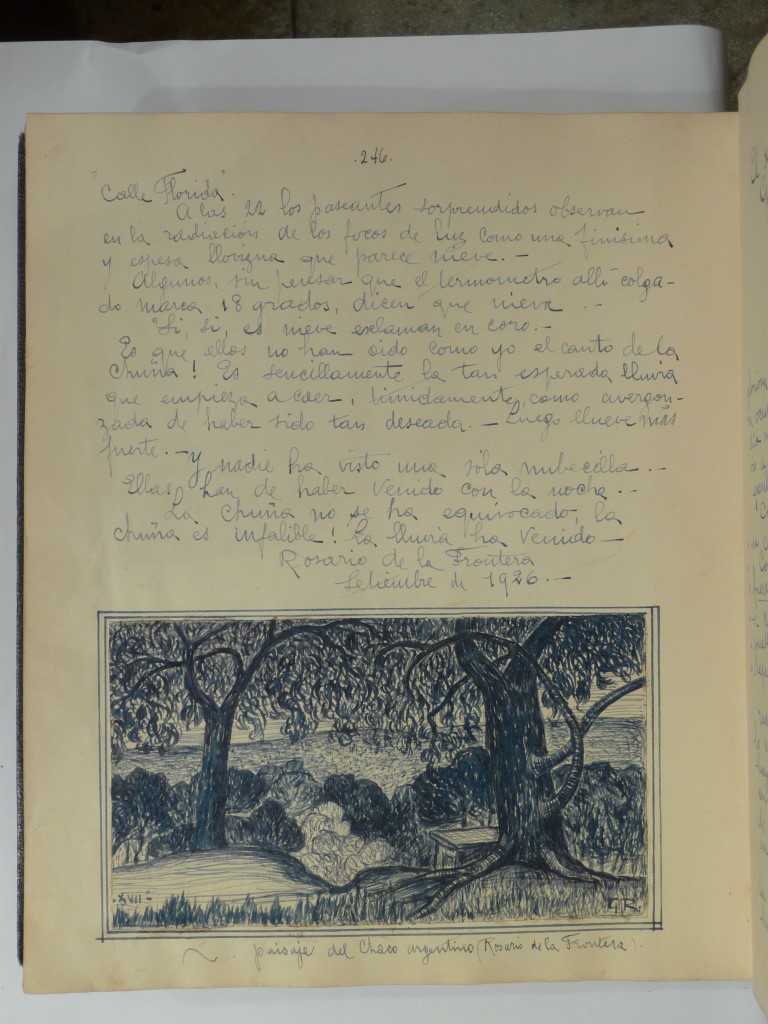 .246.
"Calle Florida".
A las 22 los paseantes sorprendidos observan
en la radiación de los focos de luz como una finísima
y espesa llovizna que parece nieve.—
Algunos, sin pensar que el termometro allí colga-
do marca 18 grados, dicen que nieva .—
"Si, si, es nieve exclaman en coro.—
Es que ellos no han oido como yo el canto de la
Chuña! Es sencillamente la tan esperada lluvia
que empieza a caer, timidamente, como avergon-
zada de haber sido tan deseada.— Luego llueve más
fuerte.— y nadie ha visto una sóla nubecilla.—
Ellas han de haber venido con la noche.—
La Chuña no se ha equivocado, la
chuña es infalible! La lluvia ha venido—
Rosario de la Frontera
Setiembre de 1926.—
.XVII.
G.R.
paisaje del Chaco argentino (Rosario de la Frontera).